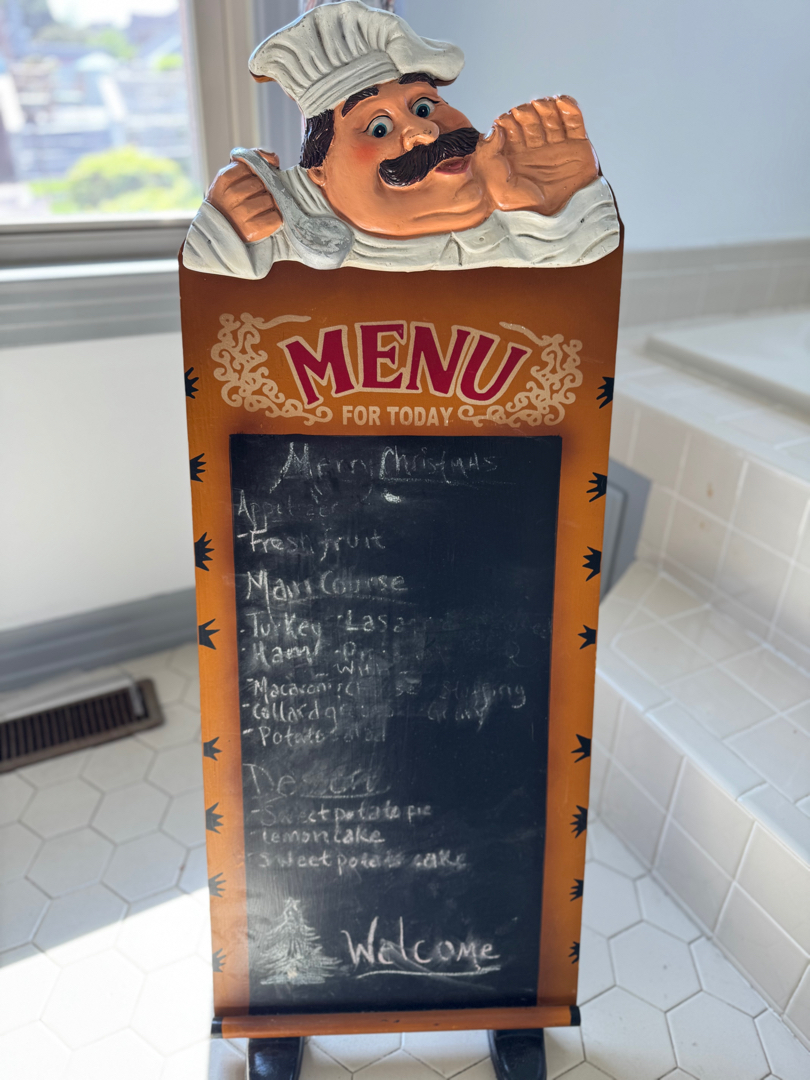 MENU
FOR TODAY
Merry Christmas
Appetizer
- Fresh fruit
Main Course
- Turkey - Lasa
- Ham
With
- Macaroni Stuffing
- Collard
- Potato
Dessert
- Sweet potato pie
- lemon cake
- Sweet potato cake
Welcome